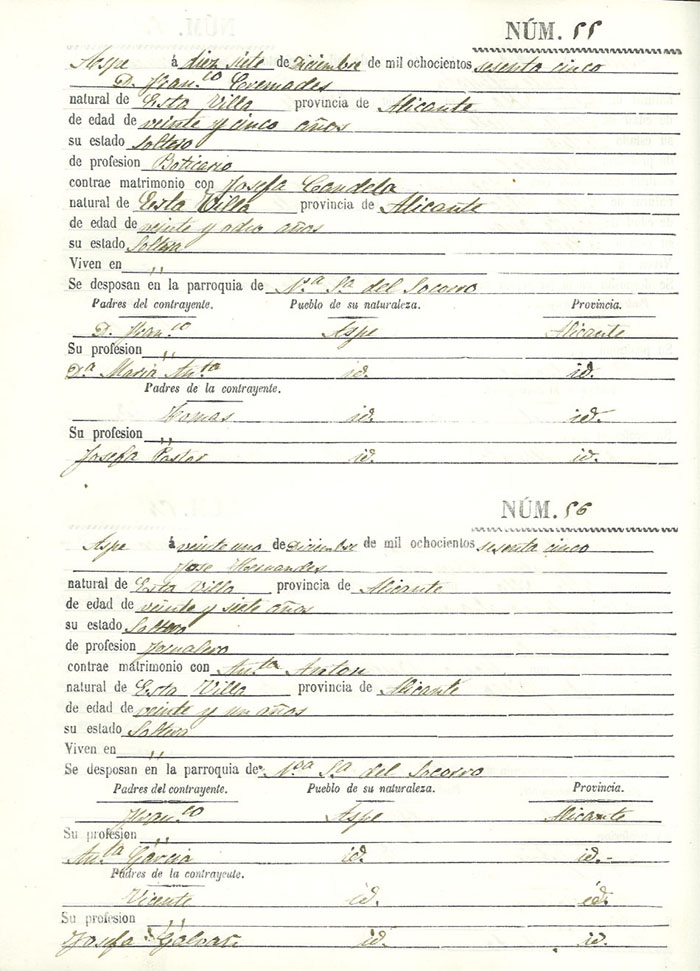 NÚM. 55
Aspe á diez siete de Diciembre de mil ochocientos sesenta cinco
D. Fran.co Cremades
natural de Esta Villa provincia de Alicante
de edad de veinte y cinco años
su estado Soltero
de profesion Boticario
contrae matrimonio con Josefa Candela
natural de Esta Villa provincia de Alicante
de edad de veinte y ocho años
su estado Soltera
Viven en ,,
Se desposan en la parroquia de N.a S.a del Socorro
Padres del contrayente. Pueblo de su naturaleza. Provincia.
D. Fran.co Aspe Alicante
Su profesion ,,
D.a Maria An.ta id. id.
Padres de la contrayente.
Tomas id. id.
Su profesion ,,
Josefa Pastor id. id.
NÚM. 56
Aspe á veinte uno de Diciembre de mil ochocientos sesenta cinco
Jose Hernandes
natural de Esta Villa provincia de Alicante
de edad de veinte y siete años
su estado Soltero
de profesion Jornalero
contrae matrimonio con An.ta Anton
natural de Esta Villa provincia de Alicante
de edad de veinte y un años
su estado Soltera
Viven en ,,
Se desposan en la parroquia de N.a S.a del Socorro
Padres del contrayente. Pueblo de su naturaleza. Provincia.
Fran.co Aspe Alicante
Su profesion ,,
An.ta Garcia id. id.
Padres de la contrayente.
Vicente id. id.
Su profesion ,,
Josefa id. id.